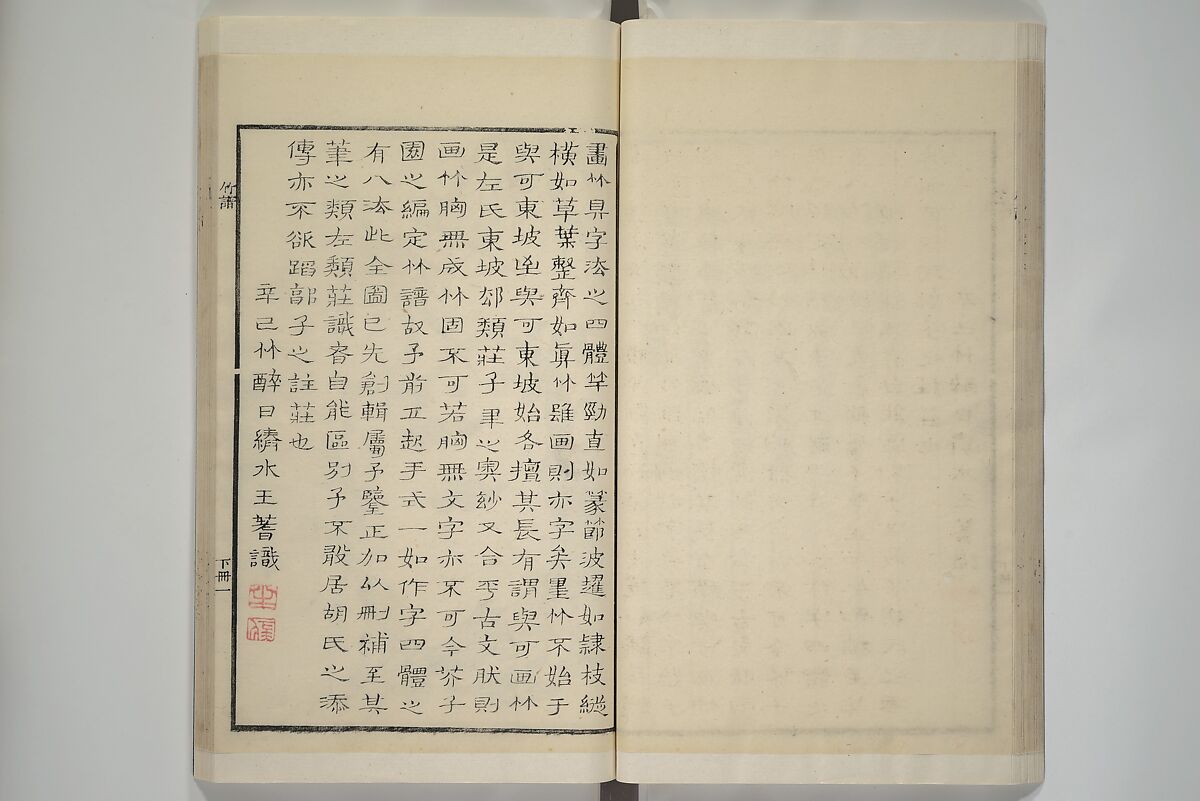 畫竹具字法之四體竿勁直如篆節波趯如隷枝縱
橫如草葉整齊如真竹雖画則亦字矣墨竹不始于
與可東坡迨與可東坡始各擅其長有謂與可画竹
是左氏東坡却類莊子聿之奧紗又合乎古文肰則
画竹胸無成竹固不可若胸無文字亦不可今芥子
園之編定竹譜故予前立起手式一如作字四體之
有八法此全圖已先創輯屬予鑒正加以刪補至其
筆之類左類莊識者自能區別予不敢居胡氏之添
傳亦不欲蹈郭子之註莊也
辛巳竹醉日繡水王蓍識
竹譜
下冊一